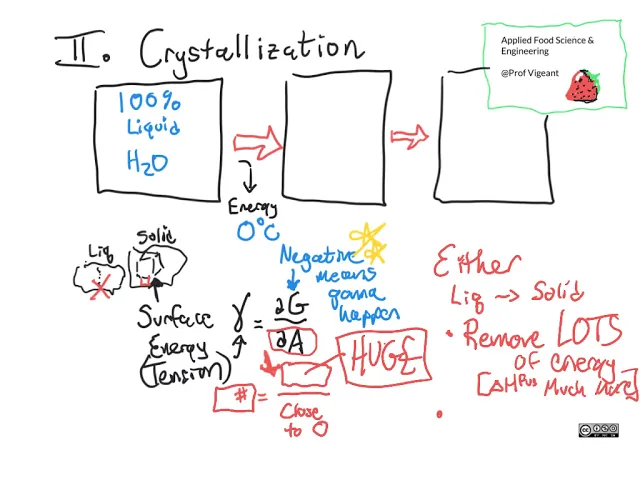 II. Crystallization
Applied Food Science &
Engineering
@Prof Vigeant
100%
Liquid
H2O
Energy
0°C
Liq
Solid
Negative
means
gonna
happen
Surface
Energy
(Tension)
γ = ∂G
∂A
HUGE
# =
Close
to 0
Either
Liq → Solid
• Remove LOTS
of energy
[ΔHfus Much more]
•